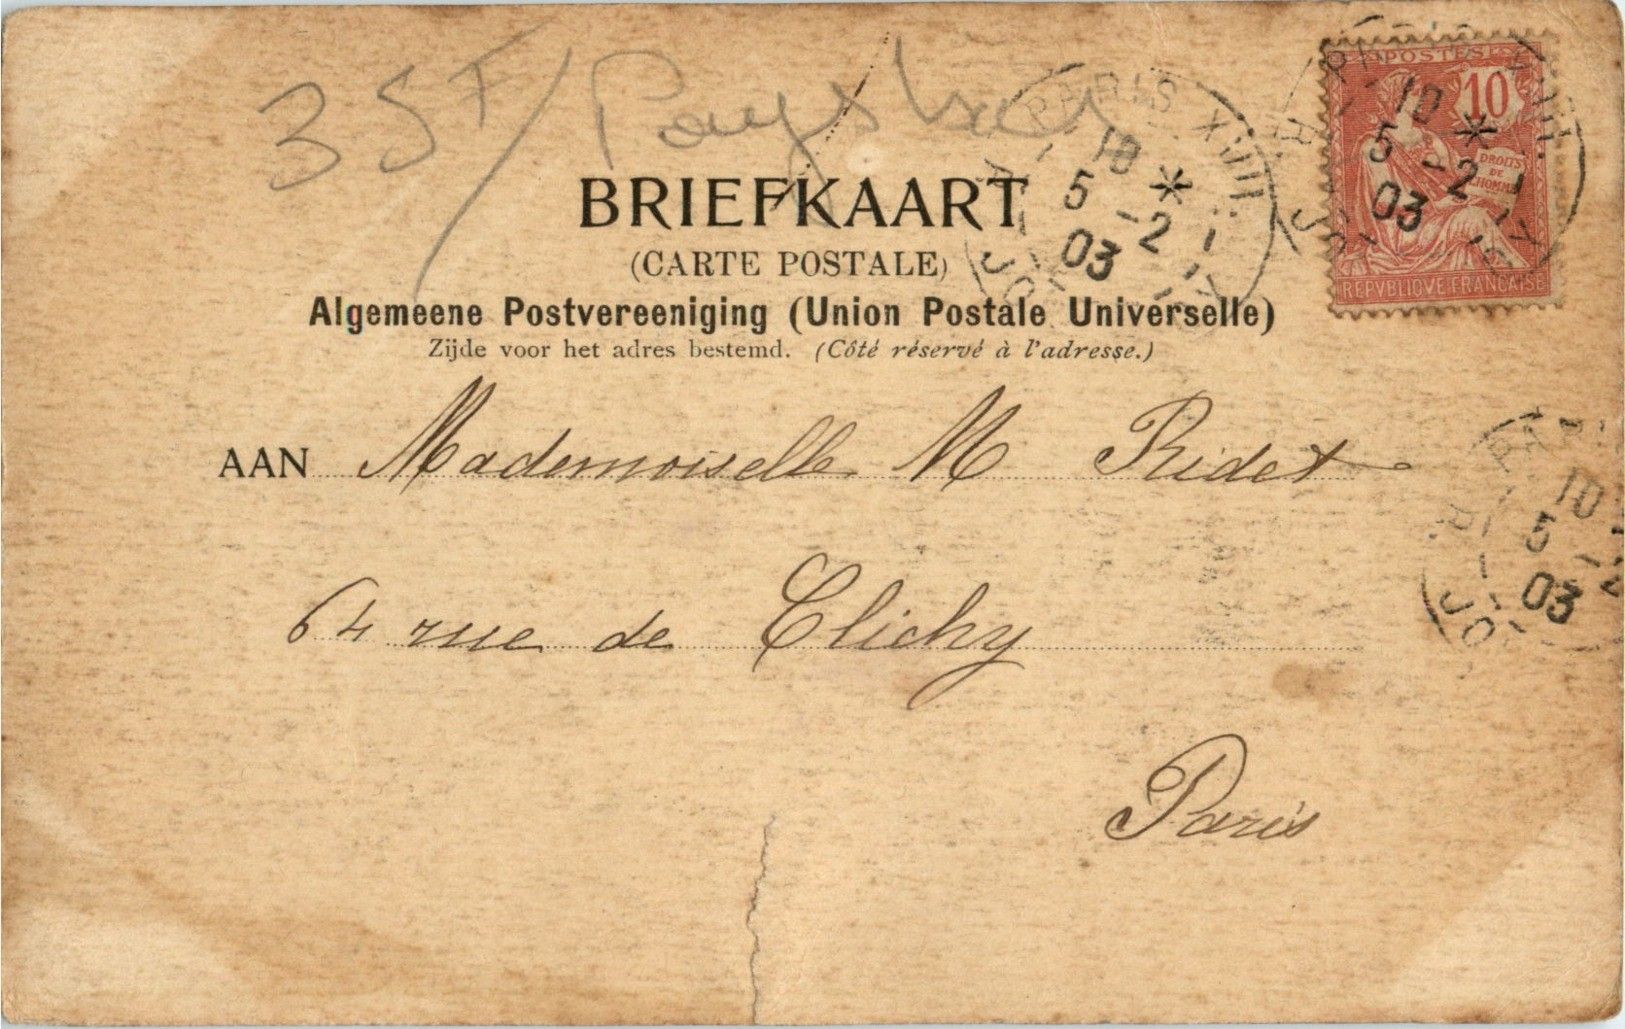 35F/ Pays bas
POSTES
10
DROITS
DE
L'HOMME
REPVBLIQVE FRANÇAISE
PARIS XVIII.
10 *
5 -2
03
BRIEFKAART
(CARTE POSTALE)
Algemeene Postvereeniging (Union Postale Universelle)
Zijde voor het adres bestemd. (Côté réservé à l'adresse.)
AAN Mademoiselle M Ridet
64 rue de Clichy
Paris
10
5 -2
03